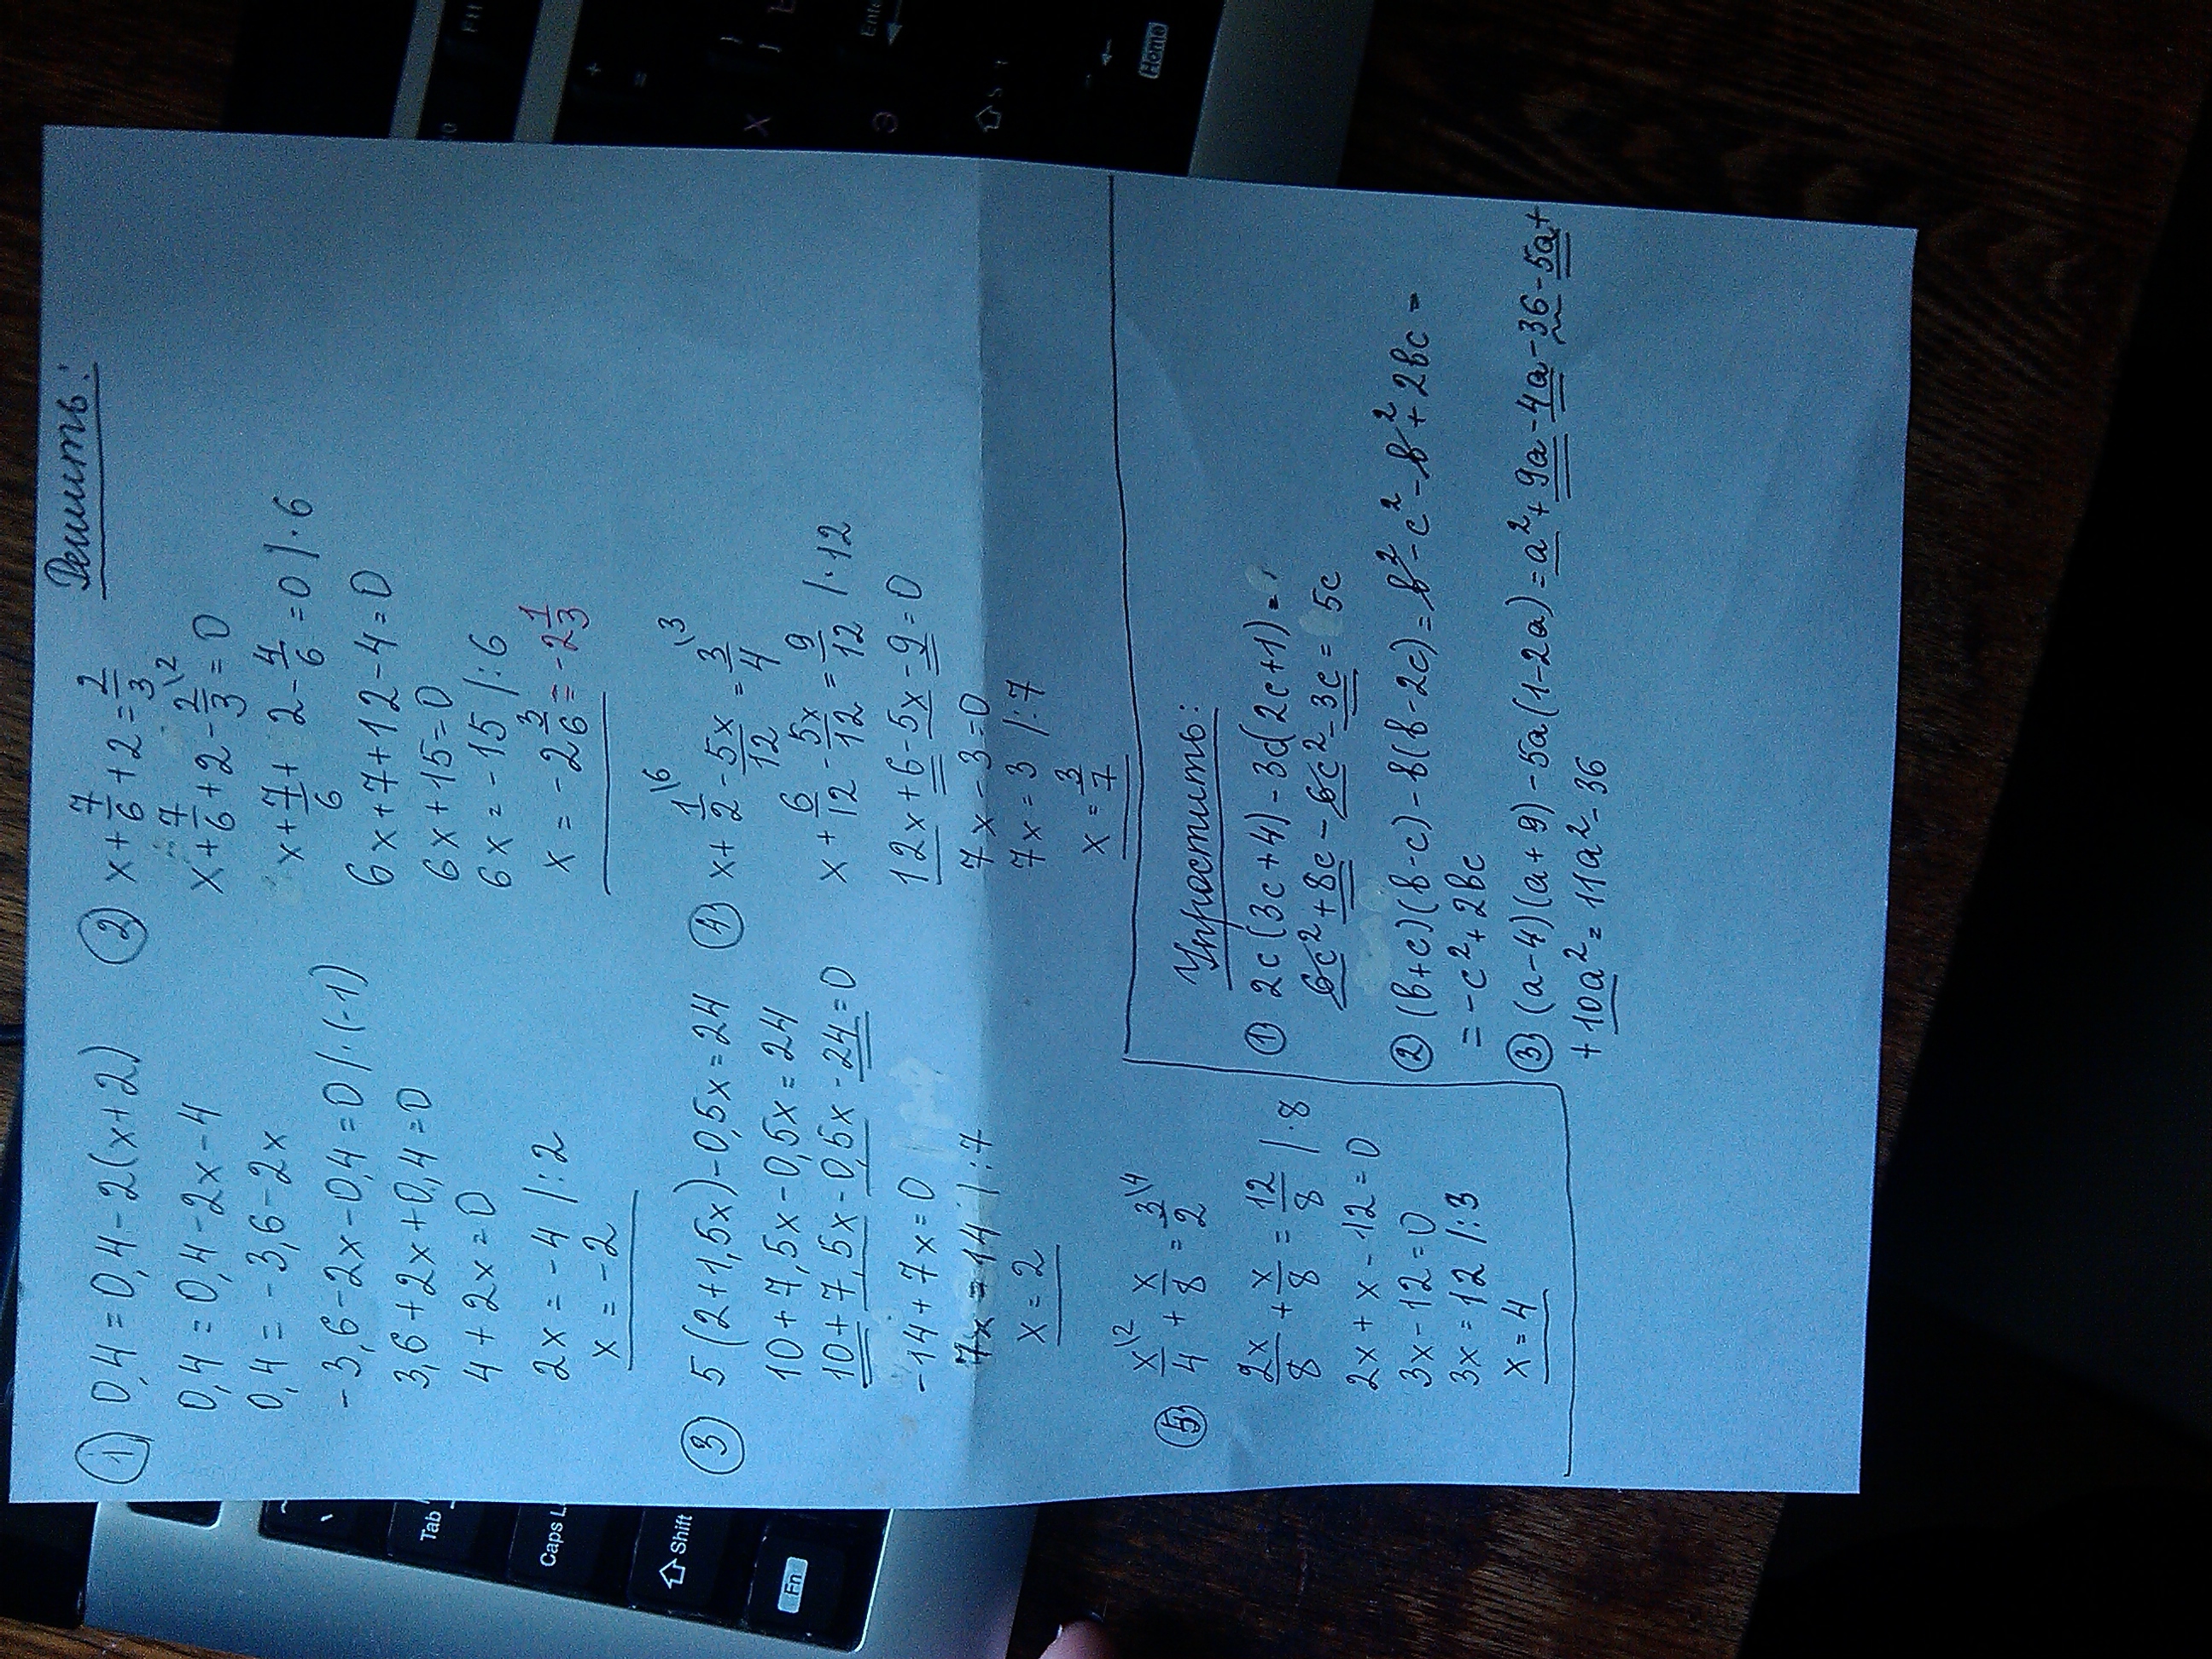 Решить:
① 0,4 = 0,4 - 2(x+2)
0,4 = 0,4 - 2x - 4
0,4 = -3,6 - 2x
-3,6 - 2x - 0,4 = 0 /·(-1)
3,6 + 2x + 0,4 = 0
4 + 2x = 0
2x = -4 /:2
x = -2
② x + 7/6 + 2 = 2/3
x + 7/6 + 2 - 2/3\2 = 0
x + 7/6 + 2 - 4/6 = 0 /·6
6x + 7 + 12 - 4 = 0
6x + 15 = 0
6x = -15 /:6
x = -2 3/6 = -2 1/3
③ 5(2+1,5x) - 0,5x = 24
10 + 7,5x - 0,5x = 24
10 + 7,5x - 0,5x - 24 = 0
-14 + 7x = 0
7x = 14 /:7
x = 2
④ x + 1/2\6 - 5x/12 = 3/4\3
x + 6/12 - 5x/12 = 9/12 /·12
12x + 6 - 5x - 9 = 0
7x - 3 = 0
7x = 3 /:7
x = 3/7
⑤ x/4\2 + x/8 = 3/2\4
2x/8 + x/8 = 12/8 /·8
2x + x - 12 = 0
3x - 12 = 0
3x = 12 /:3
x = 4
Упростить:
① 2c(3c+4) - 3c(2c+1) =
6c² + 8c - 6c² - 3c = 5c
② (b+c)(b-c) - b(b-2c) = b² - c² - b² + 2bc =
= -c² + 2bc
③ (a-4)(a+9) - 5a(1-2a) = a² + 9a - 4a - 36 - 5a +
+ 10a² = 11a² - 36
Tab
Caps L
Shift
Fn
Home
Ente
+
=
Х
Э